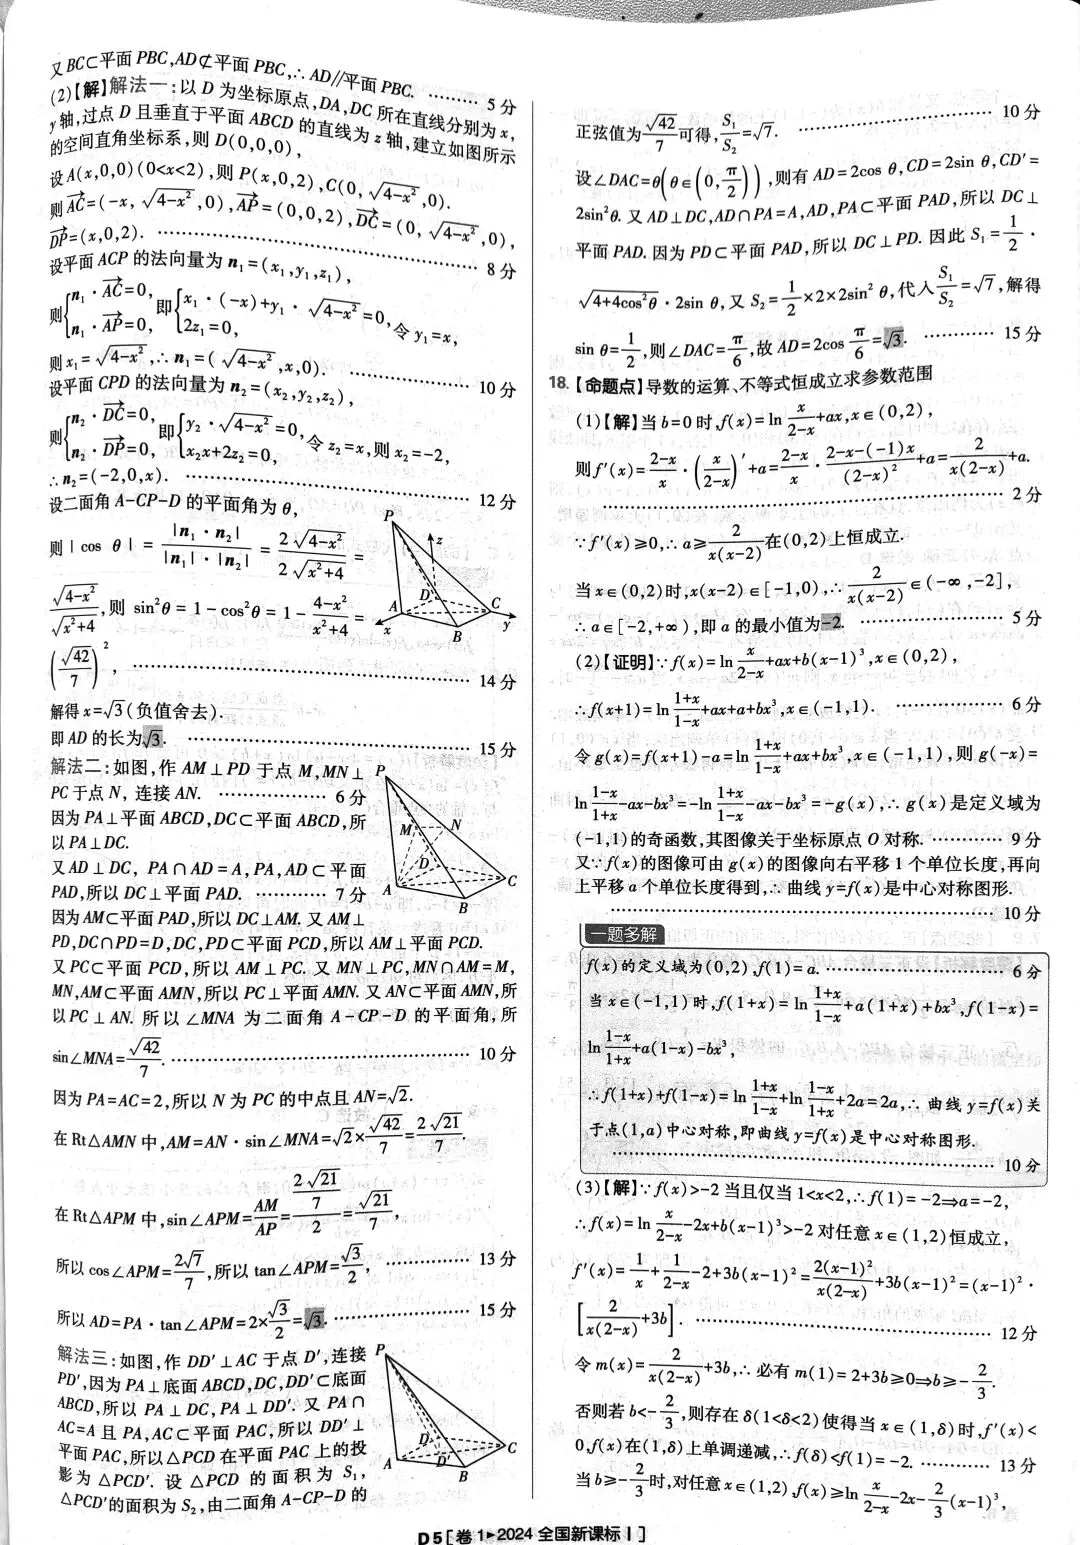 又BC⊂平面PBC,AD⊄平面PBC,∴AD//平面PBC. ……… 5分
(2)【解】解法一:以D为坐标原点,DA,DC所在直线分别为x,
y轴,过点D且垂直于平面ABCD的直线为z轴,建立如图所示
的空间直角坐标系,则D(0,0,0),
设A(x,0,0)(0<x<2),则P(x,0,2),C(0,√(4-x²),0).
则AC→=(-x,√(4-x²),0),AP→=(0,0,2),DC→=(0,√(4-x²),0),
DP→=(x,0,2). ……… 8分
设平面ACP的法向量为n₁=(x₁,y₁,z₁),
则{n₁·AC→=0, n₁·AP→=0, 即{x₁·(-x)+y₁·√(4-x²)=0, 2z₁=0, 令y₁=x,
则x₁=√(4-x²),∴n₁=(√(4-x²),x,0). ……… 10分
设平面CPD的法向量为n₂=(x₂,y₂,z₂),
则{n₂·DC→=0, n₂·DP→=0, 即{y₂·√(4-x²)=0, x₂x+2z₂=0, 令z₂=x,则x₂=-2,
∴n₂=(-2,0,x). ……… 12分
设二面角A-CP-D的平面角为θ,
则|cos θ|=|n₁·n₂|/(|n₁|·|n₂|)=2√(4-x²)/(2√(x²+4))=
√(4-x²)/√(x²+4),则sin²θ=1-cos²θ=1-(4-x²)/(x²+4)=
(√42/7)², ……… 14分
解得x=√3(负值舍去).
即AD的长为√3. ……… 15分
P
z
D
A
C
x
B
y
解法二:如图,作AM⊥PD于点M,MN⊥
PC于点N,连接AN. ……… 6分
因为PA⊥平面ABCD,DC⊂平面ABCD,所
以PA⊥DC.
又AD⊥DC,PA∩AD=A,PA,AD⊂平面
PAD,所以DC⊥平面PAD. ……… 7分
P
M
N
D
A
C
B
因为AM⊂平面PAD,所以DC⊥AM.又AM⊥
PD,DC∩PD=D,DC,PD⊂平面PCD,所以AM⊥平面PCD.
又PC⊂平面PCD,所以AM⊥PC.又MN⊥PC,MN∩AM=M,
MN,AM⊂平面AMN,所以PC⊥平面AMN.又AN⊂平面AMN,所
以PC⊥AN.所以∠MNA为二面角A-CP-D的平面角,所
sin∠MNA=√42/7. ……… 10分
因为PA=AC=2,所以N为PC的中点且AN=√2.
在Rt△AMN中,AM=AN·sin∠MNA=√2×√42/7=2√21/7.
在Rt△APM中,sin∠APM=AM/AP=(2√21/7)/2=√21/7,
所以cos∠APM=2√7/7,所以tan∠APM=√3/2, ……… 13分
所以AD=PA·tan∠APM=2×√3/2=√3. ……… 15分
解法三:如图,作DD'⊥AC于点D',连接
PD',因为PA⊥底面ABCD,DC,DD'⊂底面
ABCD,所以PA⊥DC,PA⊥DD'.又PA∩
AC=A且PA,AC⊂平面PAC,所以DD'⊥
平面PAC,所以△PCD在平面PAC上的投
影为△PCD'.设△PCD的面积为S₁,
△PCD'的面积为S₂,由二面角A-CP-D的
P
D
A
D'
C
B
正弦值为√42/7可得,S₁/S₂=√7. ……… 10分
设∠DAC=θ(θ∈(0,π/2)),则有AD=2cos θ,CD=2sin θ,CD'=
2sin²θ.又AD⊥DC,AD∩PA=A,AD,PA⊂平面PAD,所以DC⊥
平面PAD.因为PD⊂平面PAD,所以DC⊥PD.因此S₁=1/2·
√(4+4cos²θ)·2sin θ,又S₂=1/2×2×2sin²θ,代入S₁/S₂=√7,解得
sin θ=1/2,则∠DAC=π/6,故AD=2cos π/6=√3. ……… 15分
18.【命题点】导数的运算、不等式恒成立求参数范围
(1)【解】当b=0时,f(x)=ln x/(2-x)+ax,x∈(0,2),
则f'(x)=(2-x)/x·(x/(2-x))'+a=(2-x)/x·(2-x-(-1)x)/(2-x)²+a=2/(x(2-x))+a.
……… 2分
∵f'(x)≥0,∴a≥2/(x(x-2))在(0,2)上恒成立.
当x∈(0,2)时,x(x-2)∈[-1,0),∴2/(x(x-2))∈(-∞,-2],
∴a∈[-2,+∞),即a的最小值为-2. ……… 5分
(2)【证明】∵f(x)=ln x/(2-x)+ax+b(x-1)³,x∈(0,2),
∴f(x+1)=ln (1+x)/(1-x)+ax+a+bx³,x∈(-1,1). ……… 6分
令g(x)=f(x+1)-a=ln (1+x)/(1-x)+ax+bx³,x∈(-1,1),则g(-x)=
ln (1-x)/(1+x)-ax-bx³=-ln (1+x)/(1-x)-ax-bx³=-g(x),∴g(x)是定义域为
(-1,1)的奇函数,其图象关于坐标原点O对称. ……… 9分
又∵f(x)的图像可由g(x)的图像向右平移1个单位长度,再向
上平移a个单位长度得到,∴曲线y=f(x)是中心对称图形.
……… 10分
一题多解
f(x)的定义域为(0,2),f(1)=a. ……… 6分
当x∈(-1,1)时,f(1+x)=ln (1+x)/(1-x)+a(1+x)+bx³,f(1-x)=
ln (1-x)/(1+x)+a(1-x)-bx³,
∴f(1+x)+f(1-x)=ln (1+x)/(1-x)+ln (1-x)/(1+x)+2a=2a,∴曲线y=f(x)关
于点(1,a)中心对称,即曲线y=f(x)是中心对称图形.
……… 10分
(3)【解】∵f(x)>-2当且仅当1<x<2,∴f(1)=-2⇒a=-2,
∴f(x)=ln x/(2-x)-2x+b(x-1)³>-2对任意x∈(1,2)恒成立,
f'(x)=1/x+1/(2-x)-2+3b(x-1)²=2(x-1)²/(x(2-x))+3b(x-1)²=(x-1)²·
[2/(x(2-x))+3b]. ……… 12分
令m(x)=2/(x(2-x))+3b,∴必有m(1)=2+3b≥0⇒b≥-2/3.
否则若b<-2/3,则存在δ(1<δ<2)使得当x∈(1,δ)时,f'(x)<
0,f(x)在(1,δ)上单调递减,∴f(δ)<f(1)=-2. ……… 13分
当b≥-2/3时,对任意x∈(1,2),f(x)≥ln x/(2-x)-2x-2/3(x-1)³,
D5[卷1▸2024全国新课标Ⅰ]